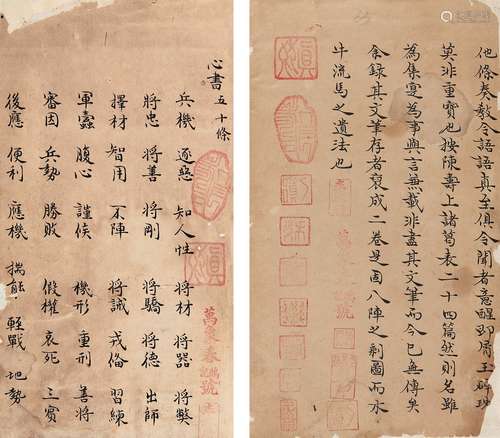 他條奏教令語語真至俱令聞者意醒
莫非重寶也按陳壽上諸葛表二十四篇然則名雖
為集實為事與言兼載非盡其文筆而今已無傳矣
余錄其文筆存者裒成二卷是固八陣之剩圖而木
牛流馬之遺法也
心書 五十條
兵機 逐惡 知人性 將材 將器 將弊
將忠 將善 將剛 將驕 將德 出師
擇材 智用 不陣 將誡 戎俻 習練
軍蠹 腹心 謹候 機形 重刑 善將
審因 兵勢 勝敗 假權 哀死 三賓
後應 便利 應機 揣能 輕戰 地勢